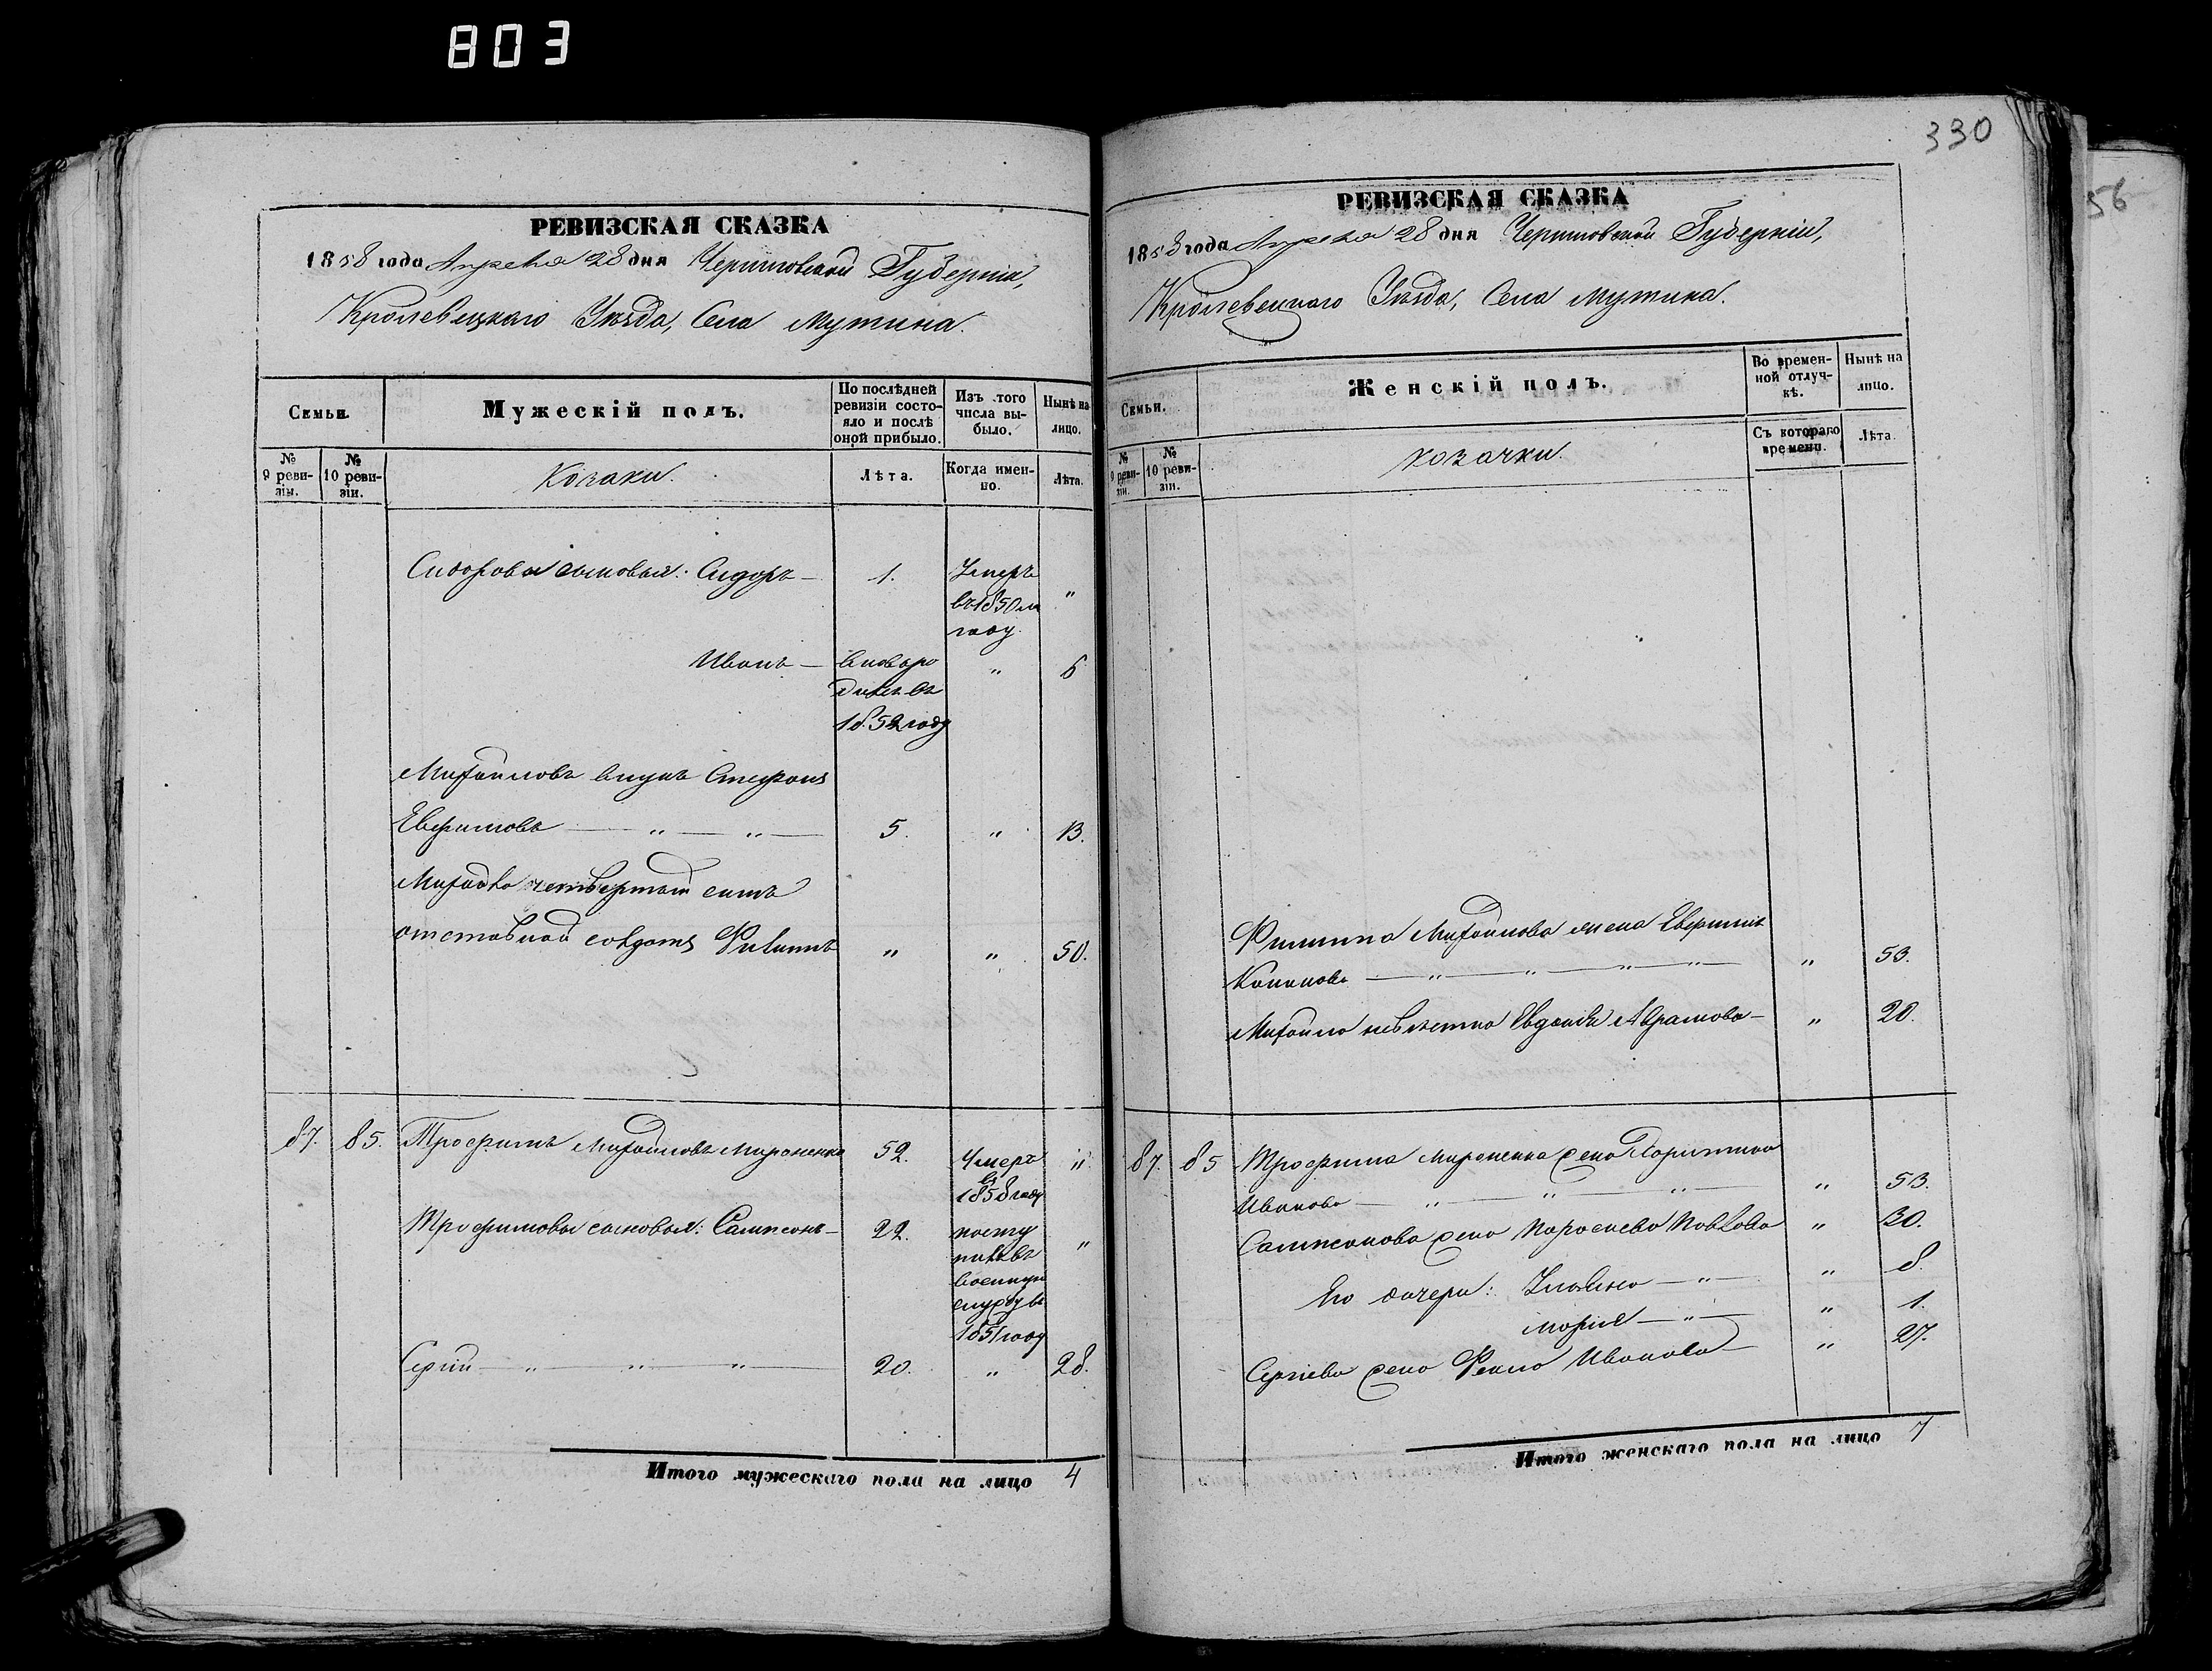 803
330
56
РЕВИЗСКАЯ СКАЗКА
1858 года Апреля 28 дня Черниговской Губерніи,
Кролевецкаго Уѣзда, Села Мутина.
Семьи.
Мужескій полъ.
По послѣдней ревизіи состояло и послѣ оной прибыло.
Изъ того числа выбыло.
Нынѣ на лицо.
№ 9 ревизіи.
№ 10 ревизіи.
Козаки.
Лѣта.
Когда именно.
Лѣта.
Сидоровы сыновья: Сидоръ — 1. Умеръ "
въ 1850 м
году.
Иванъ — вновь ро " 6
дился въ
1852 году
Михайловъ внукъ Стефанъ
Евфимовъ — " — " — 5. " 13.
Михайла четвертый сынъ
отставной солдатъ Филипъ " " 50.
87. 85. Трофимъ Михайловъ Мироненко 52. Умеръ "
въ
1858 году
Трофимовы сыновья: Сампсонъ — 22. посту "
пилъ въ
военную
службу въ
1851 году
Сергій — " " " — 20. " 28.
Итого мужескаго пола на лицо 4
РЕВИЗСКАЯ СКАЗКА
1858 года Апреля 28 дня Черниговской Губерніи,
Кролевецкаго Уѣзда, Села Мутина.
Семьи.
Женскій полъ.
Во временной отлучкѣ.
Нынѣ на лицо.
№ 9 ревизіи.
№ 10 ревизіи.
козачки.
Съ котораго времени.
Лѣта.
Филиппа Михайлова жена Евфимія
Кононова — " — " — " — " — " 53.
Михайла невѣстка Евдокія Абрамова — " 20.
87. 85 Трофима Мироненка жена
Иванова — " — " — " " 53.
Сампсонова жена Параскева Павлова " 30.
Его дочери: Ульяна — " — " 8.
Марія — " — " 1.
Сергіева жена Фекла Иванова — " 27.
Итого женскаго пола на лицо 7